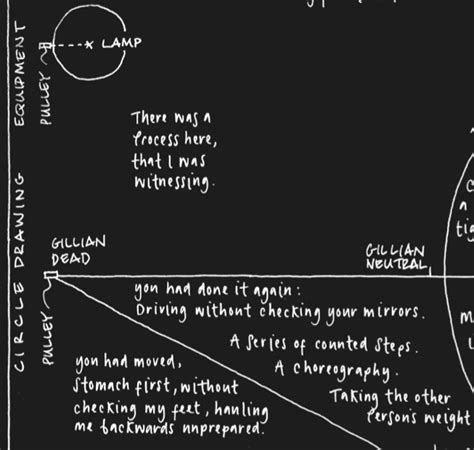 EQUIPMENT
PULLEY
LAMP
There was a
Process here,
that I was
witnessing.
CIRCLE DRAWING
PULLEY
GILLIAN
DEAD
GILLIAN
NEUTRAL
you had done it again:
Driving without checking your mirrors.
A series of counted steps.
A choreography.
Taking the other
Person's weight
you had moved,
stomach first, without
checking my feet, hauling
me backwards unprepared.